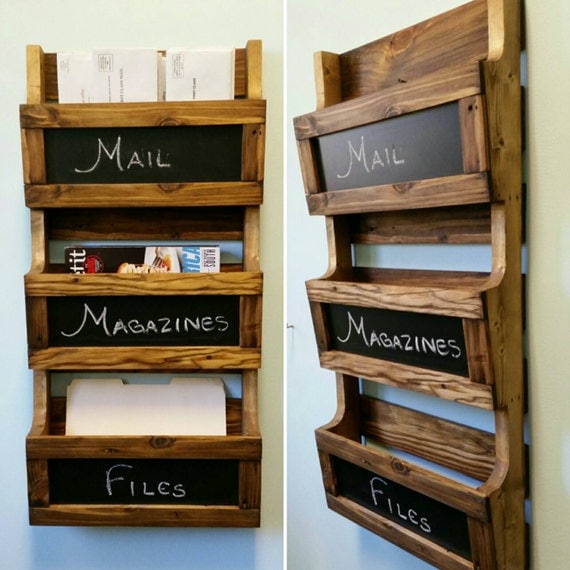 Mail
Magazines
Files
Mail
Magazines
Files